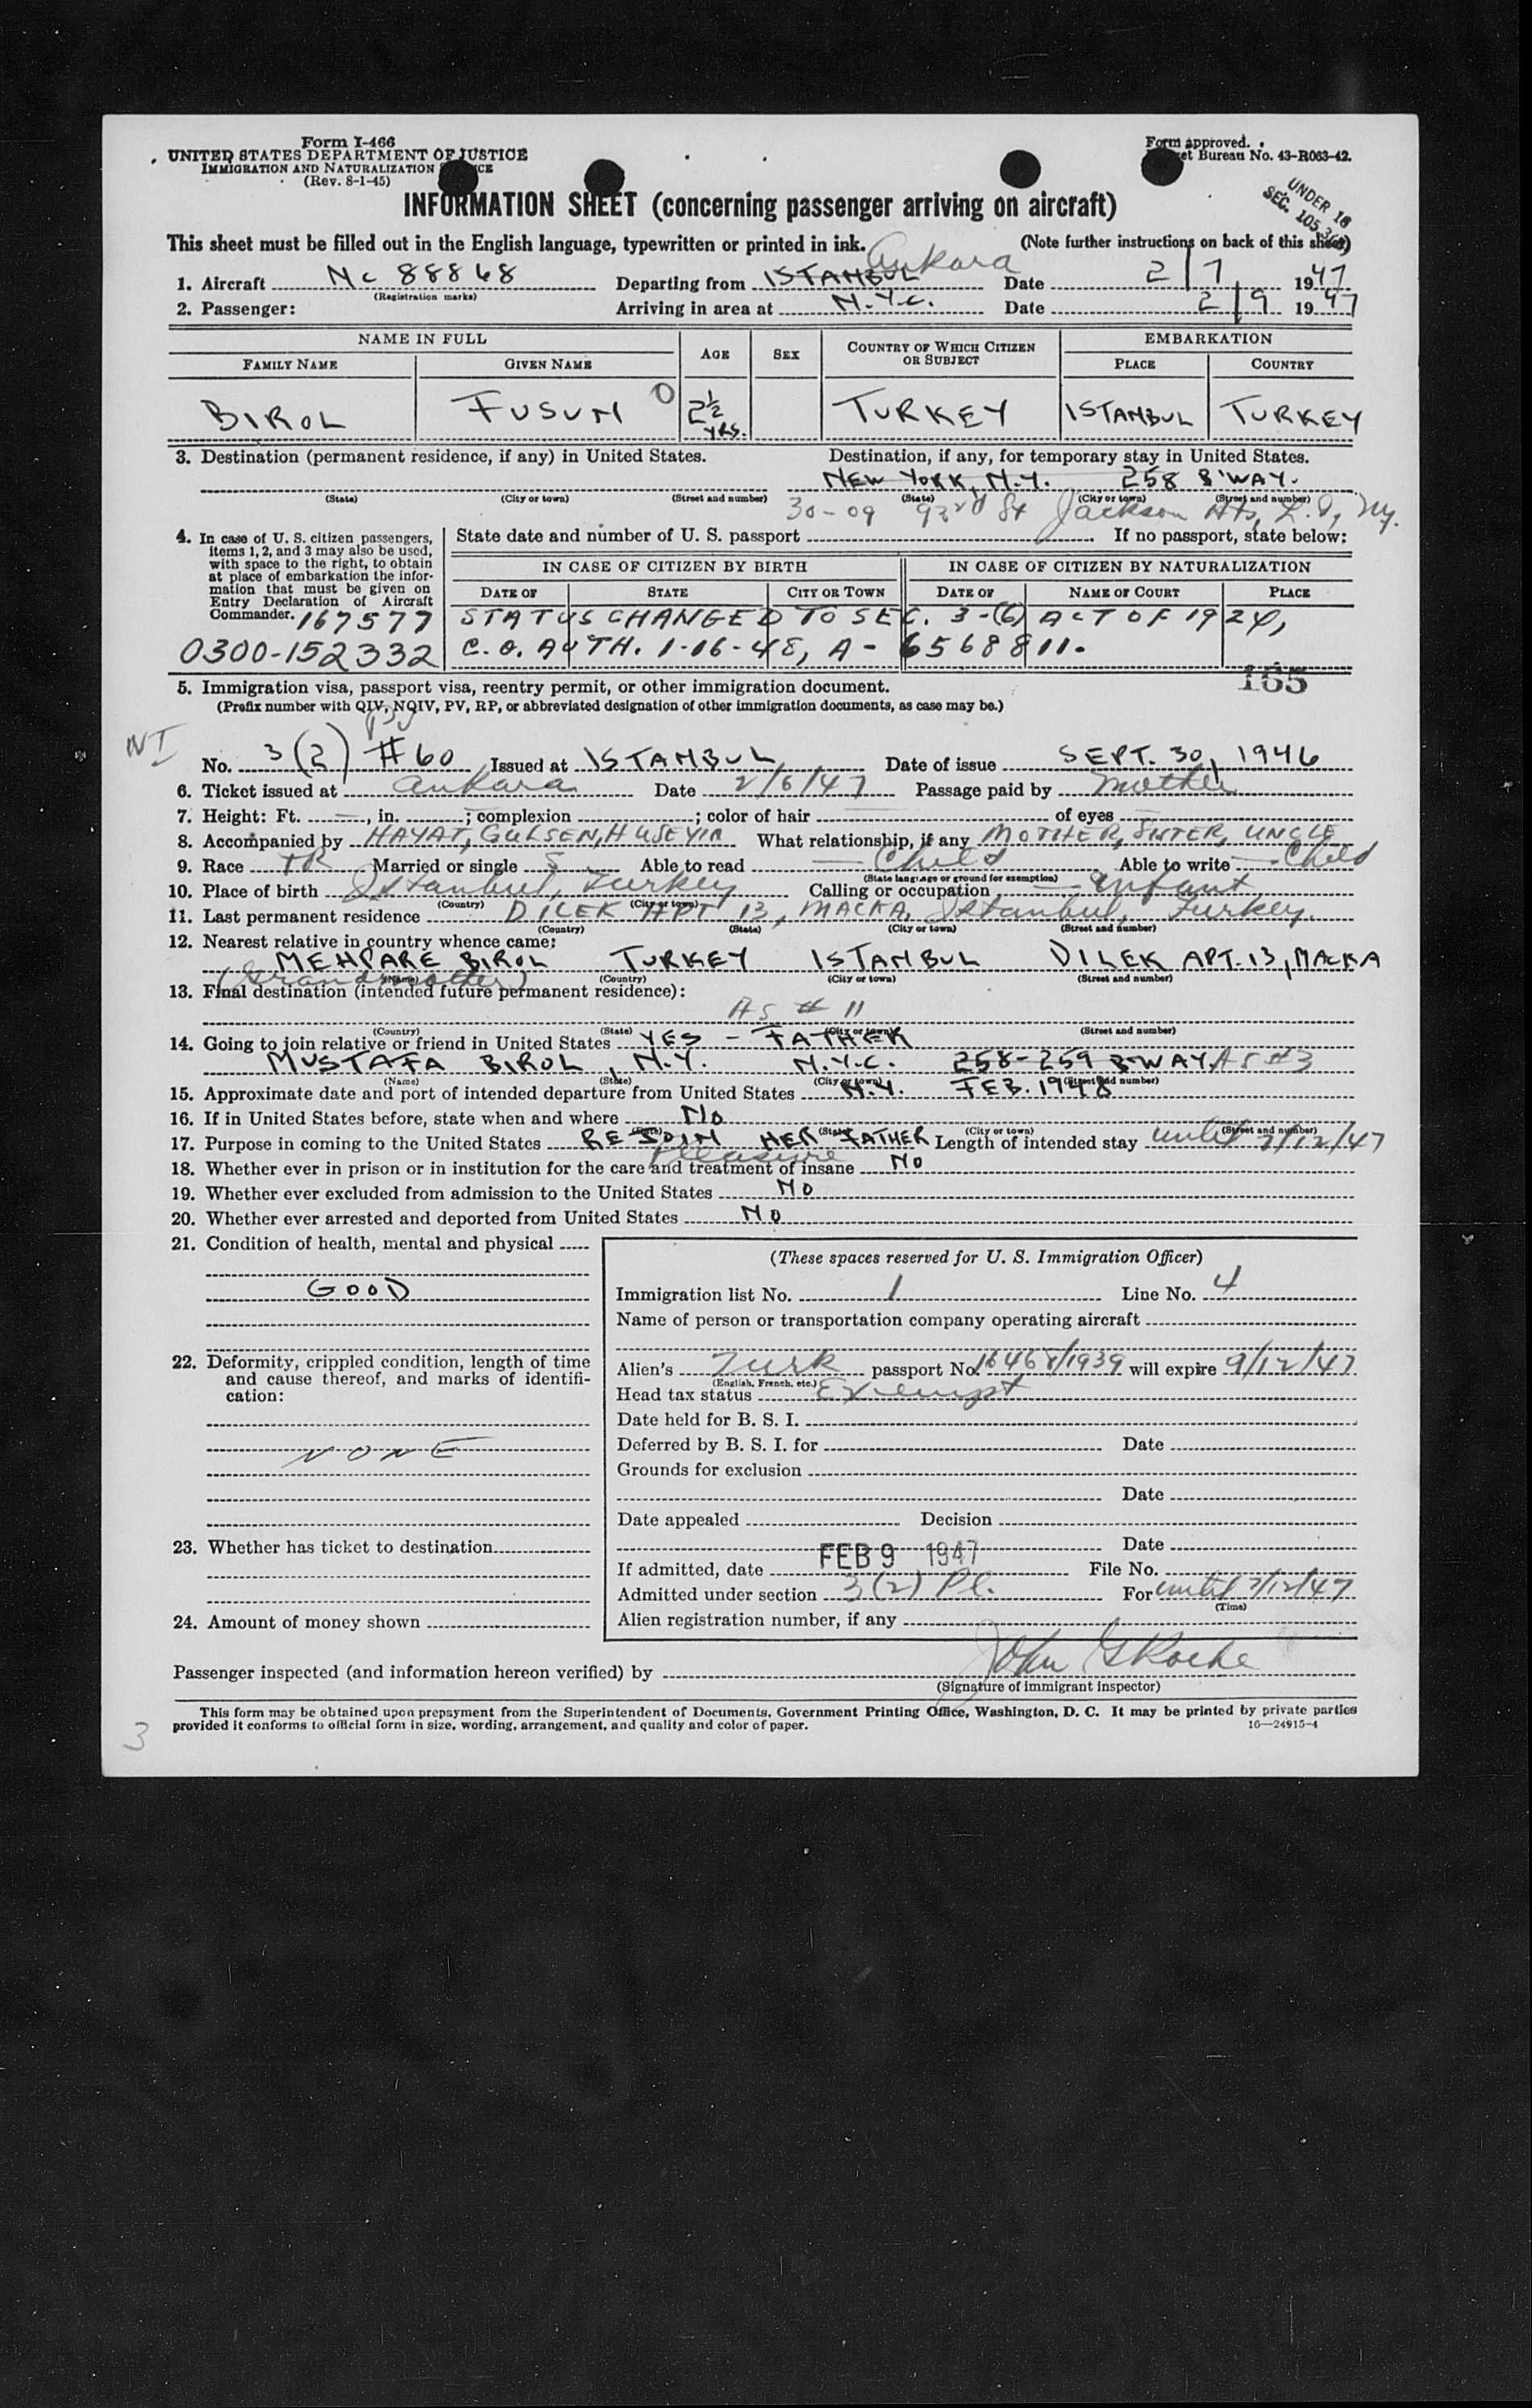 Form I-466
UNITED STATES DEPARTMENT OF JUSTICE
IMMIGRATION AND NATURALIZATION
(Rev. 8-1-45)
Form approved.
et Bureau No. 43-R063-42.
UNDER 16
SEC. 105.3
INFORMATION SHEET (concerning passenger arriving on aircraft)
This sheet must be filled out in the English language, typewritten or printed in ink. (Note further instructions on back of this sheet)
Ankara
1. Aircraft Nc 88868 Departing from ISTANBUL Date 2/7 1947
(Registration marks)
2. Passenger: Arriving in area at N.Y.C. Date 2/9 1947
NAME IN FULL AGE SEX COUNTRY OF WHICH CITIZEN OR SUBJECT EMBARKATION
FAMILY NAME GIVEN NAME PLACE COUNTRY
BIROL FUSUN 0 2½ YRS. TURKEY ISTANBUL TURKEY
3. Destination (permanent residence, if any) in United States. Destination, if any, for temporary stay in United States.
NEW YORK, N.Y. 258 B'WAY.
(State) (City or town) (Street and number) (State) (City or town) (Street and number)
30-09 93rd St Jackson Hts, L.I., N.Y.
4. In case of U. S. citizen passengers, items 1, 2, and 3 may also be used, with space to the right, to obtain at place of embarkation the information that must be given on Entry Declaration of Aircraft Commander. 167577
0300-152332
State date and number of U. S. passport If no passport, state below:
IN CASE OF CITIZEN BY BIRTH IN CASE OF CITIZEN BY NATURALIZATION
DATE OF STATE CITY OR TOWN DATE OF NAME OF COURT PLACE
STATUS CHANGED TO SEC. 3-(6) ACT OF 1924,
C.O. AUTH. 1-16-48, A-6568811.
165
5. Immigration visa, passport visa, reentry permit, or other immigration document.
(Prefix number with QIV, NQIV, PV, RP, or abbreviated designation of other immigration documents, as case may be.)
NI
No. 3(2) #60 Issued at ISTANBUL Date of issue SEPT. 30, 1946
6. Ticket issued at Ankara Date 2/6/47 Passage paid by Mother
7. Height: Ft. —, in. ; complexion ; color of hair — of eyes —
8. Accompanied by HAYAT, GULSEN, HUSEYIN What relationship, if any MOTHER, SISTER, UNCLE
9. Race TR Married or single S Able to read — Child Able to write — Child
(State language or ground for exemption)
10. Place of birth Istanbul, Turkey Calling or occupation — Infant
(Country) (City or town)
11. Last permanent residence DILEK APT 13, MACKA, Istanbul, Turkey.
(Country) (State) (City or town) (Street and number)
12. Nearest relative in country whence came:
MEHPARE BIROL TURKEY ISTANBUL DILEK APT. 13, MACKA
(Grandmother) (Name) (Country) (City or town) (Street and number)
13. Final destination (intended future permanent residence):
AS # 11
(Country) (State) (City or town) (Street and number)
14. Going to join relative or friend in United States YES - FATHER
MUSTAFA BIROL, N.Y. N.Y.C. 258-259 B-WAY AS #3
(Name) (State) (City or town) (Street and number)
15. Approximate date and port of intended departure from United States N.Y. FEB. 1948
16. If in United States before, state when and where No
(Date) (State) (City or town) (Street and number)
17. Purpose in coming to the United States REJOIN HER FATHER Length of intended stay until 7/12/47
Pleasure
18. Whether ever in prison or in institution for the care and treatment of insane No
19. Whether ever excluded from admission to the United States No
20. Whether ever arrested and deported from United States No
21. Condition of health, mental and physical
GOOD
22. Deformity, crippled condition, length of time and cause thereof, and marks of identification:
NONE
23. Whether has ticket to destination
24. Amount of money shown
(These spaces reserved for U. S. Immigration Officer)
Immigration list No. 1 Line No. 4
Name of person or transportation company operating aircraft
Alien's Turk passport No. 16468/1939 will expire 9/12/47
(English, French, etc.)
Head tax status Exempt
Date held for B. S. I.
Deferred by B. S. I. for Date
Grounds for exclusion
Date
Date appealed Decision
Date
If admitted, date FEB 9 1947 File No.
Admitted under section 3(2) Pl. For until 7/12/47
(Time)
Alien registration number, if any
Passenger inspected (and information hereon verified) by John G Roche
(Signature of immigrant inspector)
This form may be obtained upon prepayment from the Superintendent of Documents, Government Printing Office, Washington, D. C. It may be printed by private parties
provided it conforms to official form in size, wording, arrangement, and quality and color of paper.
16—24915-4
3